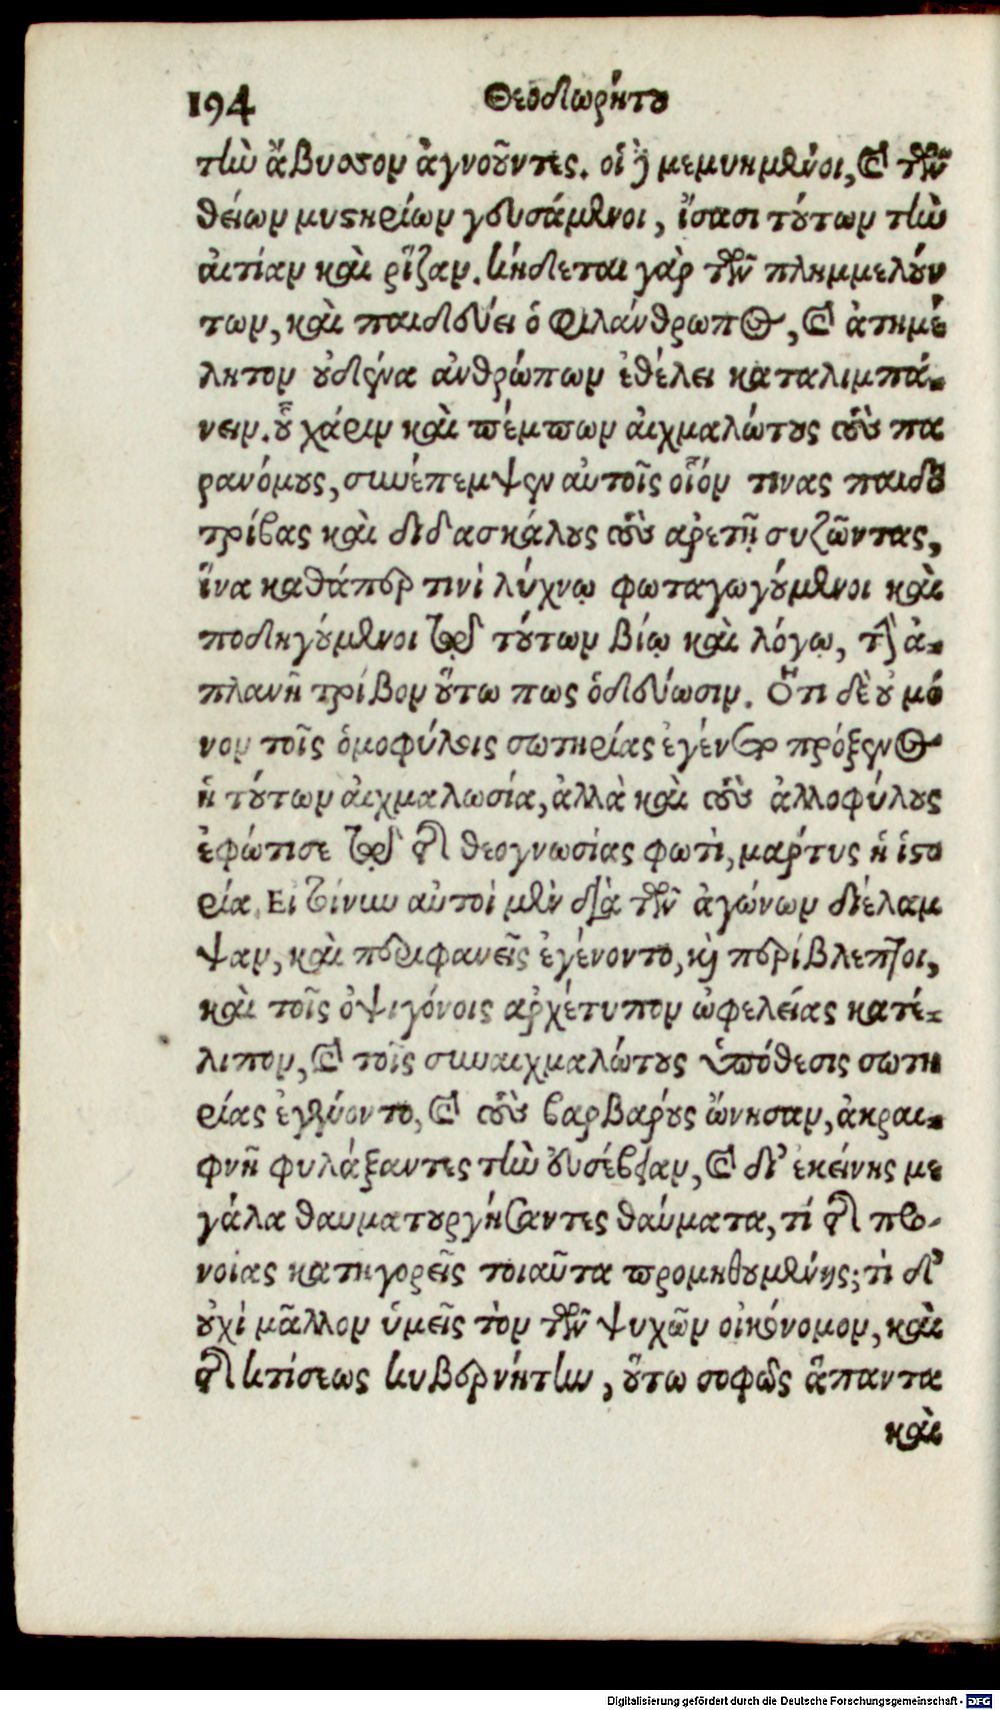 194 Θεοδωρήτου
τὴν ἄβυσσον ἀγνοοῦντες. οἱ δὲ μεμυημένοι, καὶ τῶν
θείων μυστηρίων γευσάμενοι, ἴσασι τούτων τὴν
αἰτίαν καὶ ῥίζαν. κήδεται γὰρ τῶν πλημμελούν
των, καὶ παιδεύει ὁ φιλάνθρωπος, καὶ ἀτημέ
λητον οὐδένα ἀνθρώπων ἐθέλει καταλιμπά-
νειν. οὗ χάριν καὶ πέμπων αἰχμαλώτους τοὺς πα
ρανόμους, συνέπεμψεν αὐτοῖς οἷόν τινας παιδο
τρίβας καὶ διδασκάλους τοὺς ἀρετῇ συζῶντας,
ἵνα καθάπερ τινὶ λύχνῳ φωταγωγούμενοι καὶ
ποδηγούμενοι τῷ τούτων βίῳ καὶ λόγῳ, τὴν ἀ-
πλανῆ τρίβον οὕτω πως ὁδεύωσιν. Ὅτι δὲ οὐ μό
νον τοῖς ὁμοφύλοις σωτηρίας ἐγένετο πρόξενος
ἡ τούτων αἰχμαλωσία, ἀλλὰ καὶ τοὺς ἀλλοφύλους
ἐφώτισε τῷ τῆς θεογνωσίας φωτὶ, μάρτυς ἡ ἱστο
ρία. Εἰ τοίνυν αὐτοὶ μὲν διὰ τῶν ἀγώνων διέλαμ
ψαν, καὶ περιφανεῖς ἐγένοντο, καὶ περίβλεπτοι,
καὶ τοῖς ὀψιγόνοις ἀρχέτυπον ὠφελείας κατέ-
λιπον, καὶ τοῖς συναιχμαλώτοις ὑπόθεσις σωτη
ρίας ἐγένοντο, καὶ τοὺς βαρβάρους ὤνησαν, ἀκραι-
φνῆ φυλάξαντες τὴν εὐσέβειαν, καὶ δι' ἐκείνης με
γάλα θαυματουργήσαντες θαύματα, τί τῆς προ-
νοίας κατηγορεῖς τοιαῦτα προμηθουμένης; τί δ'
οὐχὶ μᾶλλον ὑμεῖς τὸν τῶν ψυχῶν οἰκόνομον, καὶ
τῆς κτίσεως κυβερνήτην, οὕτω σοφῶς ἅπαντα
καὶ
Digitalisierung gefördert durch die Deutsche Forschungsgemeinschaft - DFG